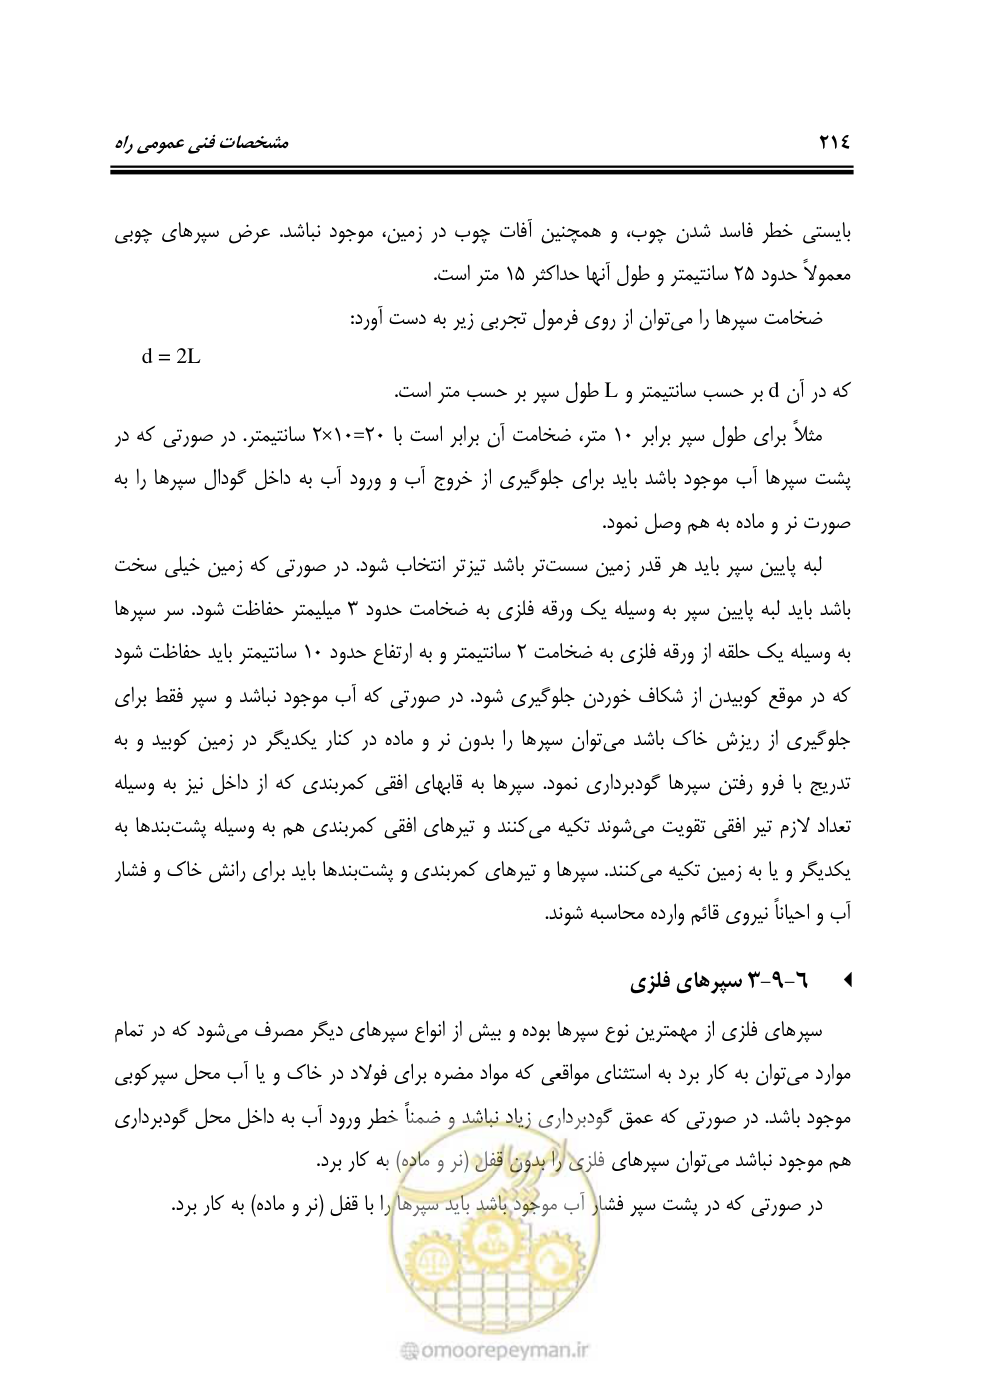 ۲۱٤ مشخصات فنی عمومی راه
بایستی خطر فاسد شدن چوب، و همچنین آفات چوب در زمین، موجود نباشد. عرض سپرهای چوبی
معمولاً حدود ۲۵ سانتیمتر و طول آنها حداکثر ۱۵ متر است.
ضخامت سپرها را می‌توان از روی فرمول تجربی زیر به دست آورد:
d = 2L
که در آن d بر حسب سانتیمتر و L طول سپر بر حسب متر است.
مثلاً برای طول سپر برابر ۱۰ متر، ضخامت آن برابر است با ۲۰=۱۰×۲ سانتیمتر. در صورتی که در
پشت سپرها آب موجود باشد باید برای جلوگیری از خروج آب و ورود آب به داخل گودال سپرها را به
صورت نر و ماده به هم وصل نمود.
لبه پایین سپر باید هر قدر زمین سست‌تر باشد تیزتر انتخاب شود. در صورتی که زمین خیلی سخت
باشد باید لبه پایین سپر به وسیله یک ورقه فلزی به ضخامت حدود ۳ میلیمتر حفاظت شود. سر سپرها
به وسیله یک حلقه از ورقه فلزی به ضخامت ۲ سانتیمتر و به ارتفاع حدود ۱۰ سانتیمتر باید حفاظت شود
که در موقع کوبیدن از شکاف خوردن جلوگیری شود. در صورتی که آب موجود نباشد و سپر فقط برای
جلوگیری از ریزش خاک باشد می‌توان سپرها را بدون نر و ماده در کنار یکدیگر در زمین کوبید و به
تدریج با فرو رفتن سپرها گودبرداری نمود. سپرها به قابهای افقی کمربندی که از داخل نیز به وسیله
تعداد لازم تیر افقی تقویت می‌شوند تکیه می‌کنند و تیرهای افقی کمربندی هم به وسیله پشت‌بندها به
یکدیگر و یا به زمین تکیه می‌کنند. سپرها و تیرهای کمربندی و پشت‌بندها باید برای رانش خاک و فشار
آب و احیاناً نیروی قائم وارده محاسبه شوند.
٦-۹-۳ سپرهای فلزی
سپرهای فلزی از مهمترین نوع سپرها بوده و بیش از انواع سپرهای دیگر مصرف می‌شود که در تمام
موارد می‌توان به کار برد به استثنای مواقعی که مواد مضره برای فولاد در خاک و یا آب محل سپرکوبی
موجود باشد. در صورتی که عمق گودبرداری زیاد نباشد و ضمناً خطر ورود آب به داخل محل گودبرداری
هم موجود نباشد می‌توان سپرهای فلزی را بدون قفل (نر و ماده) به کار برد.
در صورتی که در پشت سپر فشار آب موجود باشد باید سپرها را با قفل (نر و ماده) به کار برد.
امورپیمان
@omoorepeyman.ir